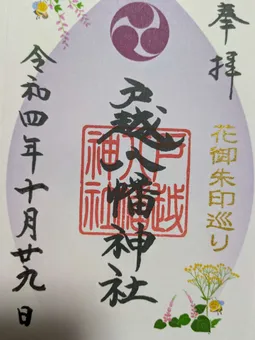 奉拝
花御朱印巡り
戸越八幡神社
戸越
八幡
神社
令和四年十月廿九日